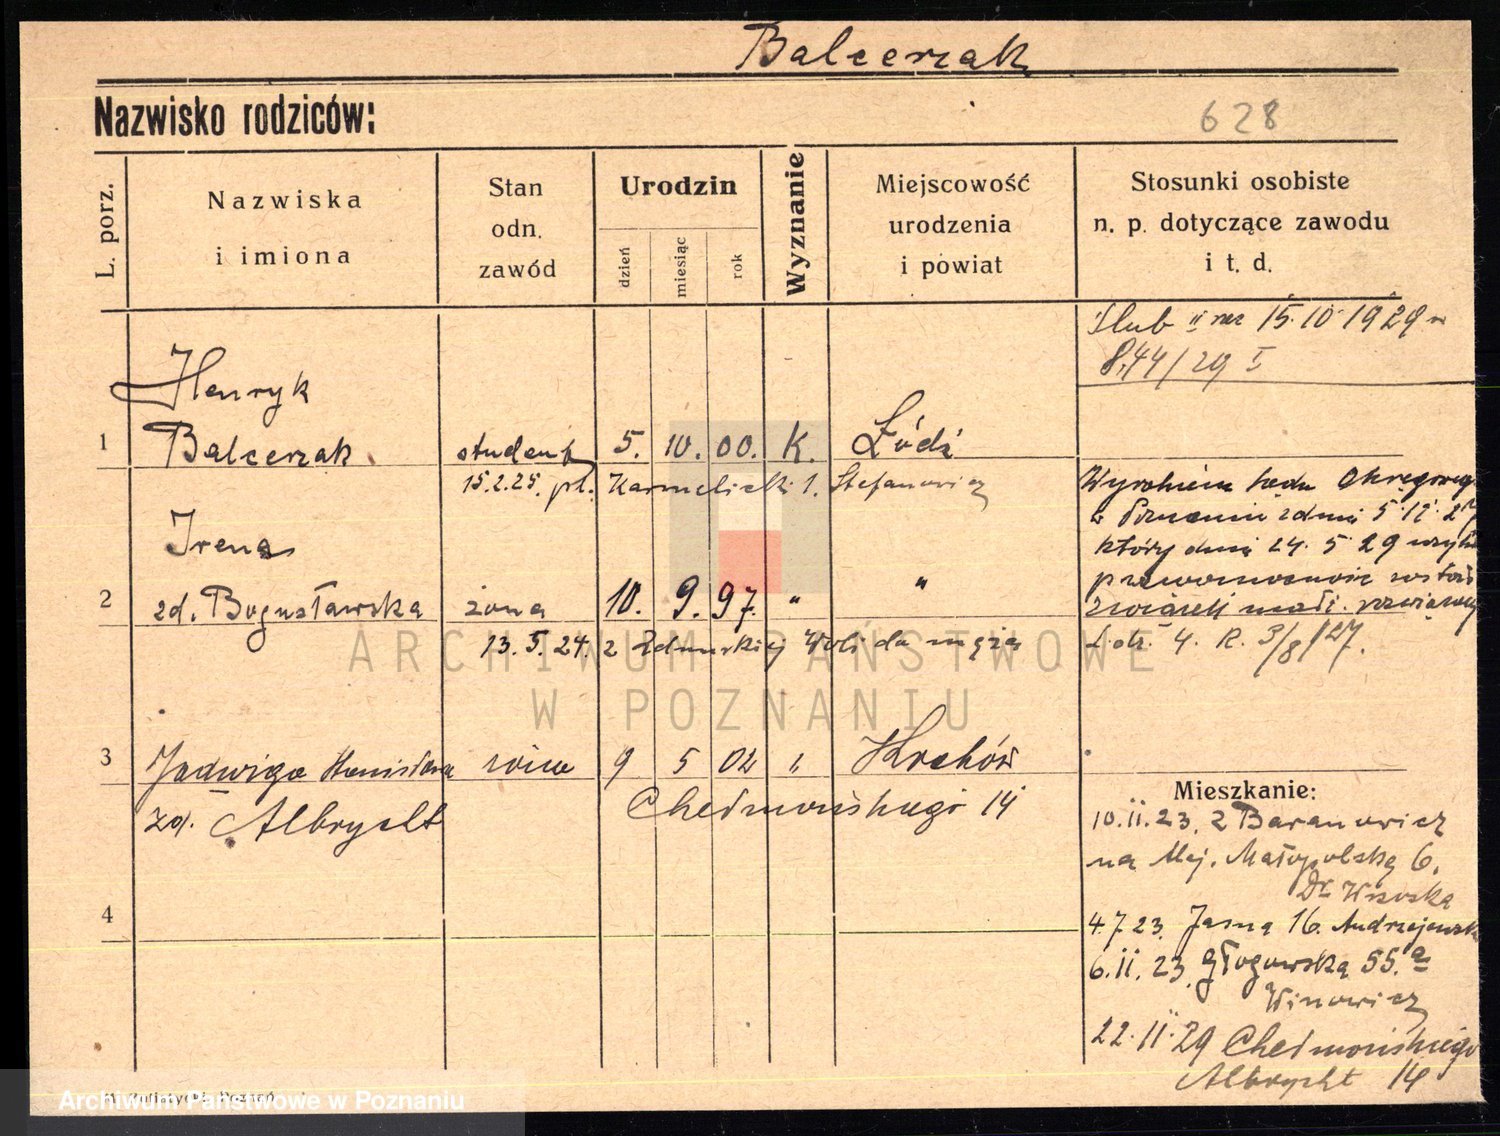 Balcerzak
Nazwisko rodziców:
628
L. porz.
Nazwiska
i imiona
Stan
odn.
zawód
Urodzin
dzień
miesiąc
rok
Wyznanie
Miejscowość
urodzenia
i powiat
Stosunki osobiste
n. p. dotyczące zawodu
i t. d.
Ślub II raz 15.10.1929
844/29 I
Henryk
1 Balcerzak student 5. 10. 00. K. Łódź
15.2.25. pl. Karmelicki 1. Stefanowicz
Wyrokiem Sądu Okręgoweg
w Poznaniu z dnia 5.12.
który dnia 24.5.29 uzysk
prawomocność został
związek małż. rozwiązany
4. R. 3/8/27.
Irena
2 zd. Bogusławska żona 10. 9. 97. " "
13.5.24. z Zduńskiej Woli do męża
3 Jadwiga Stanisława żona 9 5 02 "
zd. Albrycht Chełmońskiego 14
Mieszkanie:
10.II.23. z Baranowicz
na Alej. Małopolską 6.
Dr Wisoska
4
4.7.23. Jasna 16. Andrzejewsk
6.II.23. Głogowska 55.a
Winowicz
22.II.29 Chełmońskiego
Albrycht 14
ARCHIWUM PAŃSTWOWE
W POZNANIU
Archiwum Państwowe w Poznaniu